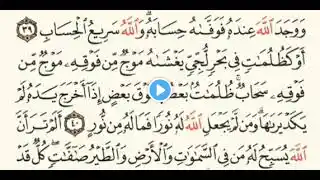 وَوَجَدَ ٱللَّهَ عِندَهُۥ فَوَفَّىٰهُ حِسَابَهُۥ ۗ وَٱللَّهُ سَرِيعُ ٱلْحِسَابِ ٣٩
أَوْ كَظُلُمَٰتٍ فِى بَحْرٍ لُّجِّىٍّ يَغْشَىٰهُ مَوْجٌ مِّن فَوْقِهِۦ مَوْجٌ مِّن
فَوْقِهِۦ سَحَابٌ ۚ ظُلُمَٰتٌۢ بَعْضُهَا فَوْقَ بَعْضٍ إِذَآ أَخْرَجَ يَدَهُۥ لَمْ
يَكَدْ يَرَىٰهَا ۗ وَمَن لَّمْ يَجْعَلِ ٱللَّهُ لَهُۥ نُورًا فَمَا لَهُۥ مِن نُّورٍ ٤٠ أَلَمْ تَرَ أَنَّ
ٱللَّهَ يُسَبِّحُ لَهُۥ مَن فِى ٱلسَّمَٰوَٰتِ وَٱلْأَرْضِ وَٱلطَّيْرُ صَٰٓفَّٰتٍ ۖ كُلٌّ قَدْ